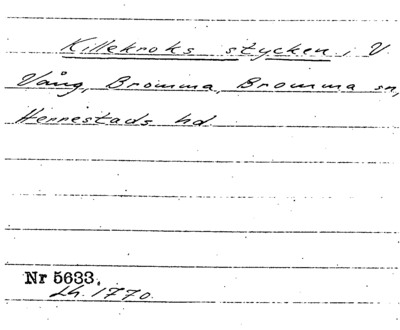 Killekroks stycken i V
Vång, Bromma, Bromma sn,
Herrestads hd.
Nr 5633.
Lh. 1770.